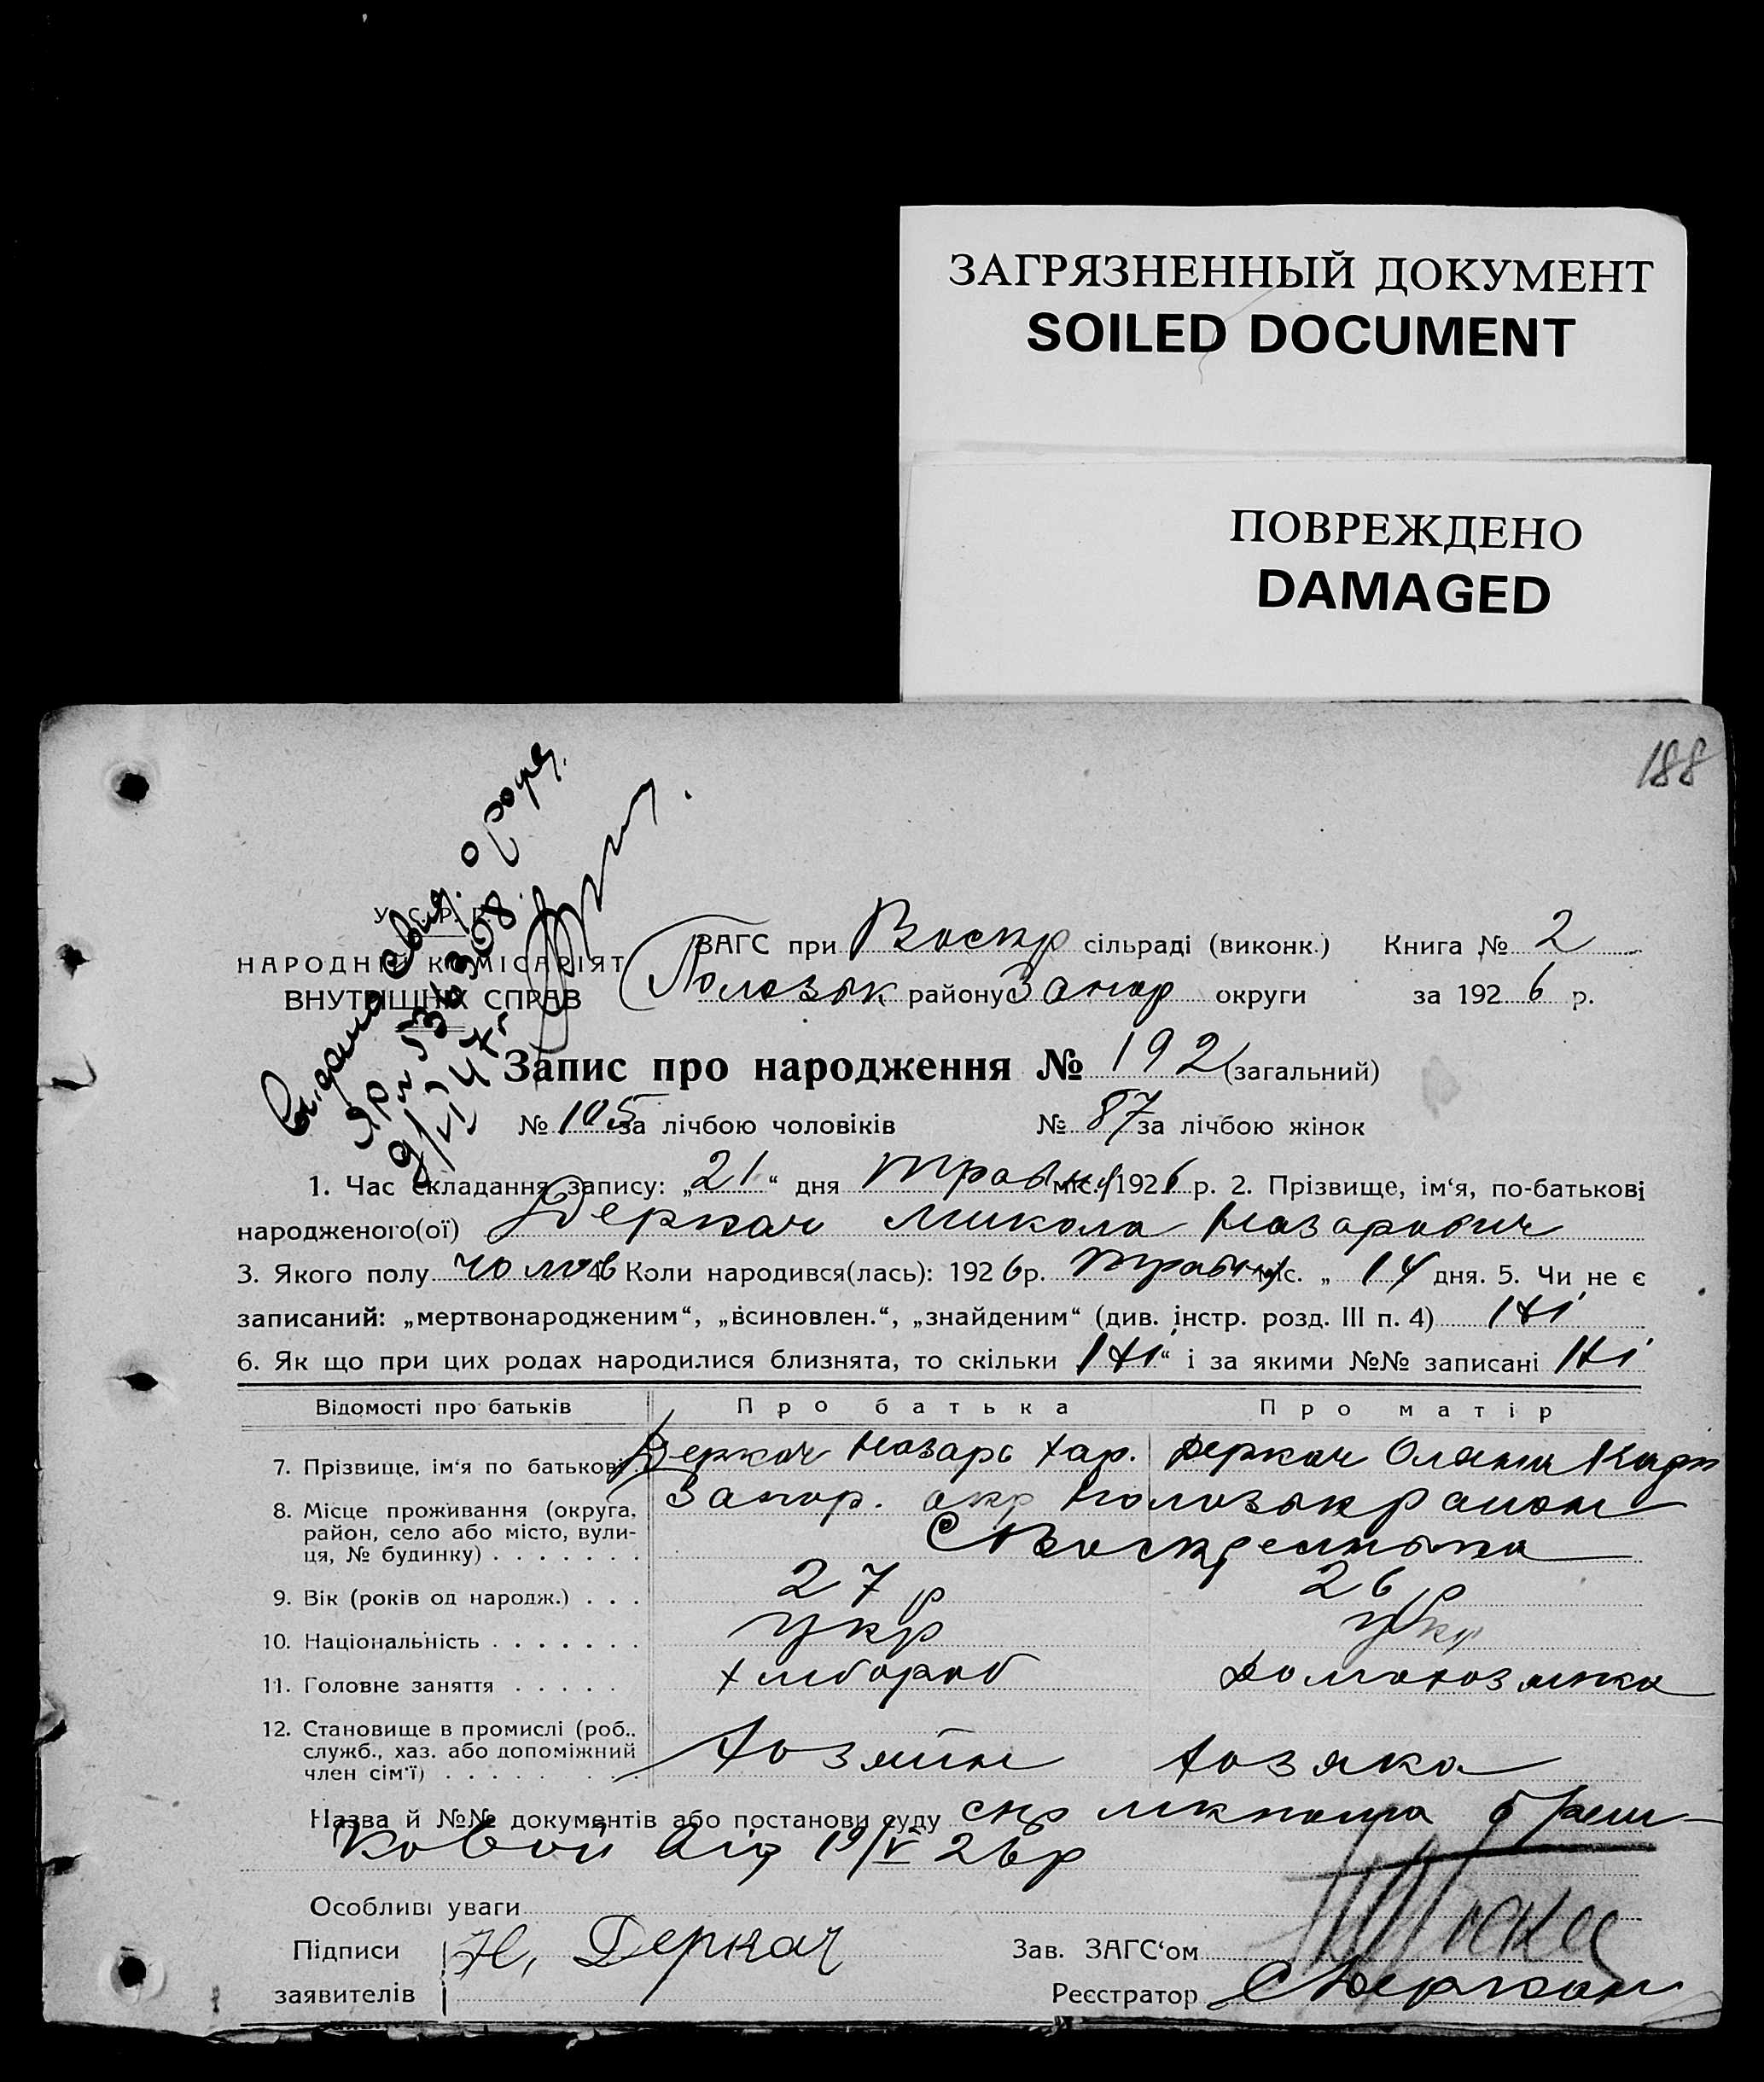 ЗАГРЯЗНЕННЫЙ ДОКУМЕНТ
SOILED DOCUMENT
ПОВРЕЖДЕНО
DAMAGED
188
Видано свид. о рожд.
9/V 47 г
У. С. Р. Р.
НАРОДНІЙ КОМІСАРІЯТ
ВНУТРІШНІХ СПРАВ
ЗАГС при Воскр сільраді (виконк.) Книга № 2
Полозьк району Запор округи за 1926 р.
Запис про народження № 192 (загальний)
№ 105 за лічбою чоловіків № 87 за лічбою жінок
1. Час складання запису: „21“ дня травня міс. 1926 р. 2. Прізвище, ім‘я, по-батькові
народженого(ої) Деркач Микола Назарович
3. Якого полу чолов 4. Коли народився(лась): 1926 р. травня міс. „14 дня. 5. Чи не є
записаний: „мертвонародженим“, „всиновлен.“, „знайденим“ (див. інстр. розд. III п. 4) Ні
6. Як що при цих родах народилися близнята, то скільки „Ні“ і за якими №№ записані Ні
Відомості про батьків Про батька Про матір
7. Прізвище, ім‘я по батькові Деркач Назарь Хар. Деркач Оляна Карп
8. Місце проживання (округа, район, село або місто, вулиця, № будинку) Запор. окр Полозьк район
С Воскресенька
9. Вік (років од народж.) 27 р 26 р
10. Національність Укр Укр
11. Головне заняття Хлібороб Домохозяйка
12. Становище в промислі (роб., служб., хаз. або допоміжний член сім‘ї) Хозяїн Хозяка
Назва й №№ документів або постанови суду
ковой від 19/V 26 р
Особливі уваги
Підписи заявителів Н. Деркач
Зав. ЗАГС‘ом
Реєстратор